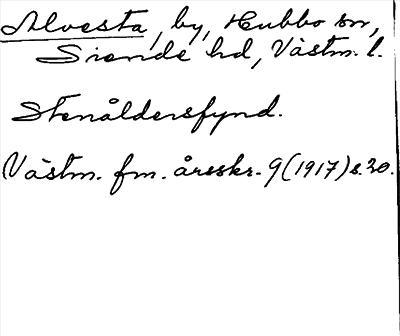 Alvesta, by, Hubbo sn,
Siende hd, Västm. l.
Stenåldersfynd.
Västm. fm. årsskr. 9 (1917) s. 20.